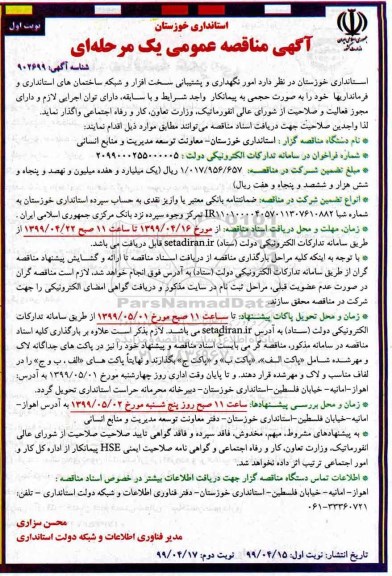 استانداری خوزستان
نوبت اول
آگهی مناقصه عمومی یک مرحله‌ای
شناسه آگهی: ۹۰۲۶۹۹
استانداری خوزستان در نظر دارد امور نگهداری و پشتیبانی سخت افزار و شبکه ساختمان های استانداری و
فرمانداریها خود را به صورت حجمی به پیمانکار واجد شرایط و با سابقه، دارای توان اجرایی لازم و دارای
مجوز فعالیت و صلاحیت از شورای عالی انفورماتیک، وزارت تعاون، کار و رفاه اجتماعی واگذار نماید.
لذا واجدین صلاحیت جهت دریافت اسناد مناقصه می‌توانند مطابق موارد ذیل اقدام نمایند:
نام دستگاه مناقصه گزار : استانداری خوزستان- معاونت توسعه مدیریت و منابع انسانی
شماره فراخوان در سامانه تدارکات الکترونیکی دولت : ۲۰۹۹۰۰۰۲۵۵۰۰۰۰۰۵
مبلغ تضمین شرکت در مناقصه: ۱/۰۱۷/۹۵۶/۶۵۷ ریال (یک میلیارد و هفده میلیون و نهصد و پنجاه و
شش هزار و ششصد و پنجاه و هفت ریال)
انواع تضمین شرکت در مناقصه: ضمانتنامه بانکی معتبر یا واریز نقدی به حساب سپرده استانداری خوزستان به
شماره شبا تمرکز وجوه سپرده نزد بانک مرکزی جمهوری اسلامی ایران .
زمان، مهلت و محل دریافت اسناد مناقصه: از مورخ ۱۳۹۹/۰۴/۱۶ تا ساعت ۱۱ صبح ۱۳۹۹/۰۴/۲۲ از
طریق سامانه تدارکات الکترونیکی دولت (ستاد) به آدرس setadiran.ir قابل دریافت می باشد.
با توجه به اینکه کلیه مراحل بارگذاری مناقصه از دریافت اسناد مناقصه تا ارائه و گشایش پیشنهاد مناقصه
گران از طریق سامانه تدارکات الکترونیکی دولت (ستاد) به آدرس فوق انجام خواهد شد، لازم است مناقصه گران
در صورت عدم عضویت قبلی، مراحل ثبت نام در سایت مذکور و دریافت گواهی امضای الکترونیکی را جهت
شرکت در مناقصه محقق سازند.
زمان و محل تحویل پاکات پیشنهاد: تا ساعت ۱۱ صبح مورخ ۱۳۹۹/۰۵/۰۱ از طریق سامانه تدارکات
الکترونیکی دولت (ستاد) به آدرس setadiran.ir می باشد. لازم بذکر است علاوه بر بارگذاری کلیه اسناد
مناقصه در سامانه مذکور، مناقصه گر می بایست اسناد مناقصه و پیشنهاد خود را نیز در پاکت های جداگانه لاک
و مهرشده شامل «پاکت الف»، «پاکت ب» و «پاکت ج» بگذارند و نهایتاً پاکت هـای «الف، ب و ج» را در
لفاف مناسب و لاک و مهرشده قرار دهند. و تا پایان وقت اداری روز چهارشنبه مورخ ۱۳۹۹/۰۵/۰۱ به آدرس:
اهواز-امانیه- خیابان فلسطین-استانداری خوزستان- دبیرخانه محرمانه حراست استانداری تحویل گردد.
زمان و محل بررسی پیشنهادها: ساعت ۱۱ صبح روز پنج شنبه مورخ ۱۳۹۹/۰۵/۰۲ به آدرس اهواز-
امانیه-خیابان فلسطین-استانداری خوزستان- دفتر معاونت توسعه مدیریت و منابع انسانی
به پیشنهادهای مشروط، مبهم، مخدوش، فاقد سپرده و فاقد گواهی تایید صلاحیت صلاحیت از شورای عالی
انفورماتیک، وزارت تعاون، کار و رفاه اجتماعی و گواهی نامه صلاحیت ایمنی HSE پیمانکار از اداره کل کار و
امور اجتماعی ترتیب اثر داده نخواهد شد.
اطلاعات تماس دستگاه مناقصه گزار جهت دریافت اطلاعات بیشتر در خصوص اسناد مناقصه :
اهواز- امانیه- خیابان فلسطین- استانداری خوزستان- دفتر فناوری اطلاعات و شبکه دولت استانداری - تلفن:
۰۶۱-۳۳۳۶۰۷۲۱
محسن سزاری
مدیر فناوری اطلاعات و شبکه دولت استانداری
تاریخ انتشار: نوبت اول: ۹۹/۰۴/۱۵ نوبت دوم: ۹۹/۰۴/۱۷